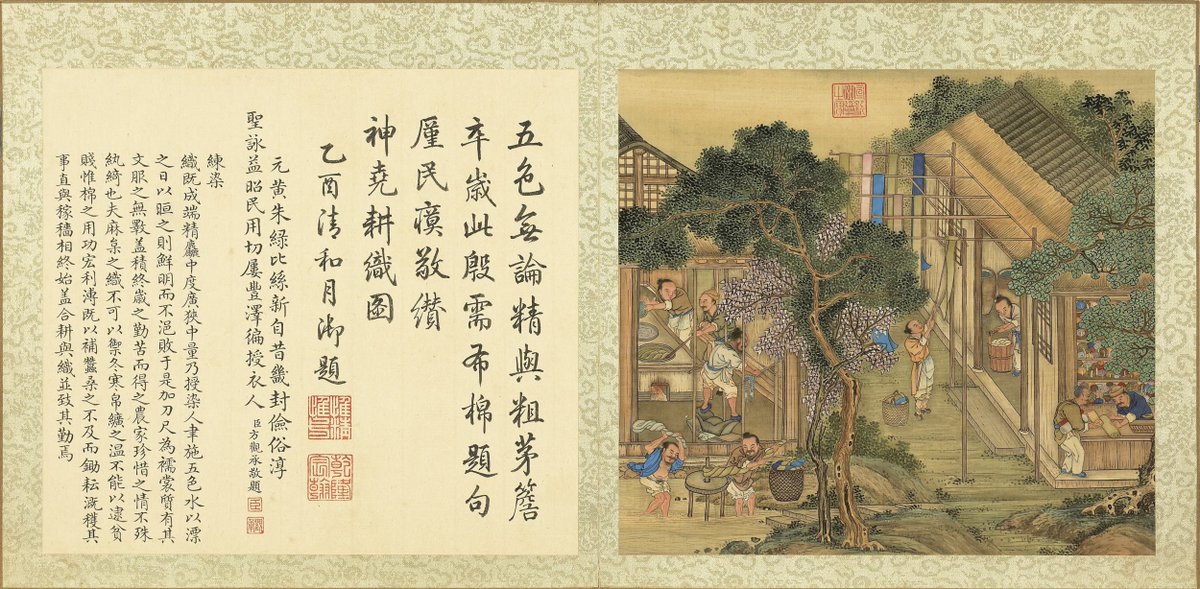 五色無論精與粗茅簷
卒歲此殷需布棉題句
厪民瘼敬纘
神堯耕織圖
乙酉清和月御題
惟精惟一
乾隆宸翰
元黃朱綠比絲新自昔畿封儉俗淳
聖詠益昭民用切屢豐澤徧授衣人 臣方觀承敬題
練染
織既成端精麤中度廣狹中量乃授染人聿施五色水以漂
之日以晅之則鮮明而不浥敗于是加刀尺為襦裳質有其
文服之無斁蓋積終歲之勤苦而得之農家珍惜之情不殊
紈綺也夫麻枲之織不可以禦冬寒帛纊之温不能以逮貧
賤惟棉之用功宏利溥既以補蠶桑之不及而鋤耘溉穫其
事直與稼穡相終始蓋合耕與織並致其勤焉